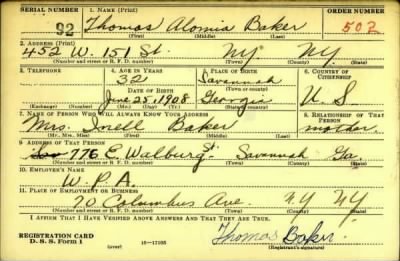 SERIAL NUMBER 1. NAME (Print) ORDER NUMBER
92 Thomas Alonia Baker 502
(First) (Middle) (Last)
2. ADDRESS (Print)
452 W. 151 St. NY NY
(Number and street or R. F. D. number) (Town) (County) (State)
3. TELEPHONE 4. AGE IN YEARS 5. PLACE OF BIRTH 6. COUNTRY OF CITIZENSHIP
32 Savannah
DATE OF BIRTH (Town or county)
June 25, 1908 Georgia U. S.
(Exchange) (Number) (Mo.) (Day) (Yr.) (State or country)
7. NAME OF PERSON WHO WILL ALWAYS KNOW YOUR ADDRESS 8. RELATIONSHIP OF THAT PERSON
Mrs. Baker mother
(Mr., Mrs., Miss) (First) (Middle) (Last)
9. ADDRESS OF THAT PERSON
776 E Walburg St. Savannah Ga.
(Number and street or R. F. D. number) (Town) (County) (State)
10. EMPLOYER'S NAME
W. P. A.
11. PLACE OF EMPLOYMENT OR BUSINESS
70 Columbus Ave. NY NY
(Number and street or R. F. D. number) (Town) (County) (State)
I AFFIRM THAT I HAVE VERIFIED ABOVE ANSWERS AND THAT THEY ARE TRUE.
REGISTRATION CARD
D. S. S. Form 1 (over) 16—17105 Thomas Baker
(Registrant's signature)